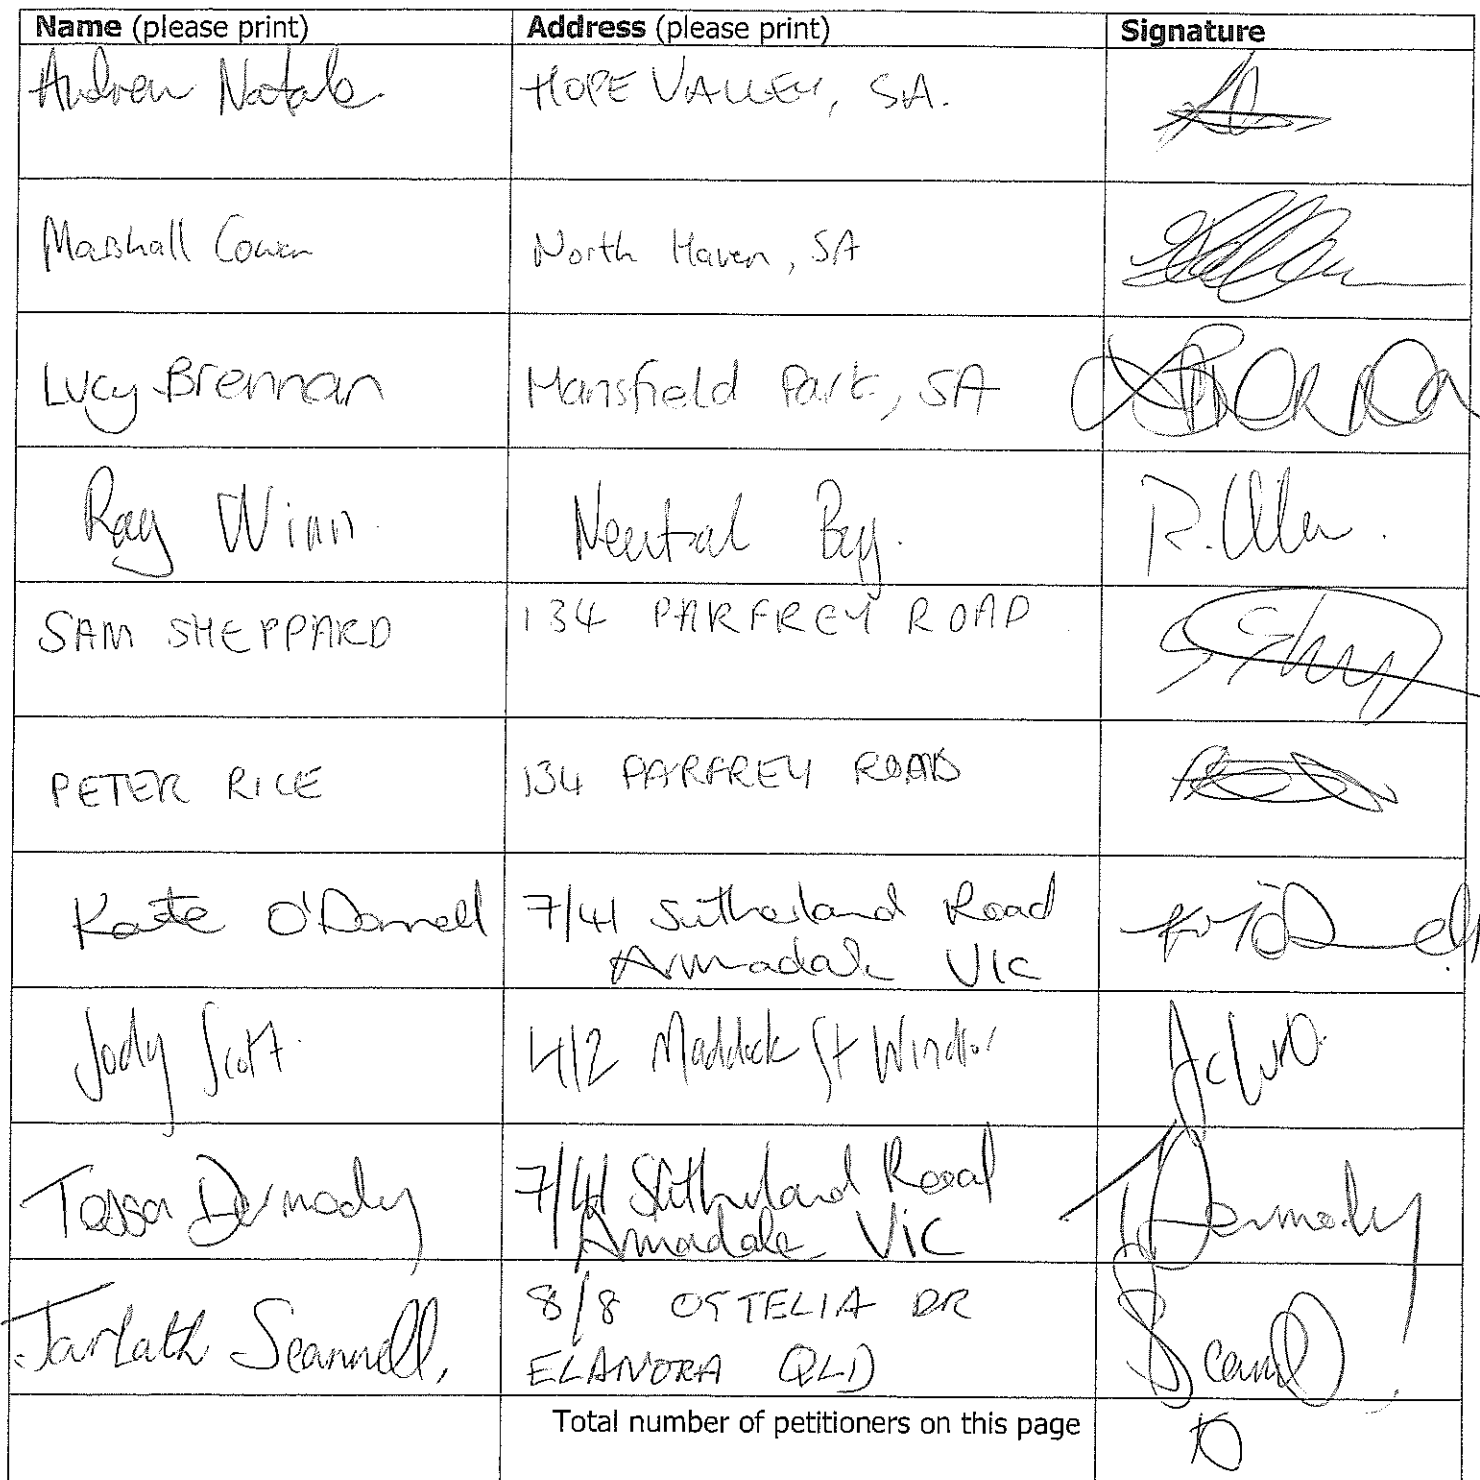 Name (please print) Address (please print) Signature
Andrew Natale HOPE VALLEY, SA.
Marshall Cowen North Haven, SA
Lucy Brennan Mansfield Park, SA
Ray Winn Neutral Bay. R.
SAM SHEPPARD 134 PARFREY ROAD
PETER RICE 134 PARFREY ROAD
Kate O'Donnell 7/41 Sutherland Road
Armadale VIC
Jody Scott 4/2 Maddock St Windsor
Tessa Dermody 7/41 Sutherland Road TDermody
Armadale Vic
Jarlath Scannell, 8/8 OSTELIA DR
ELANORA QLD
Total number of petitioners on this page 10